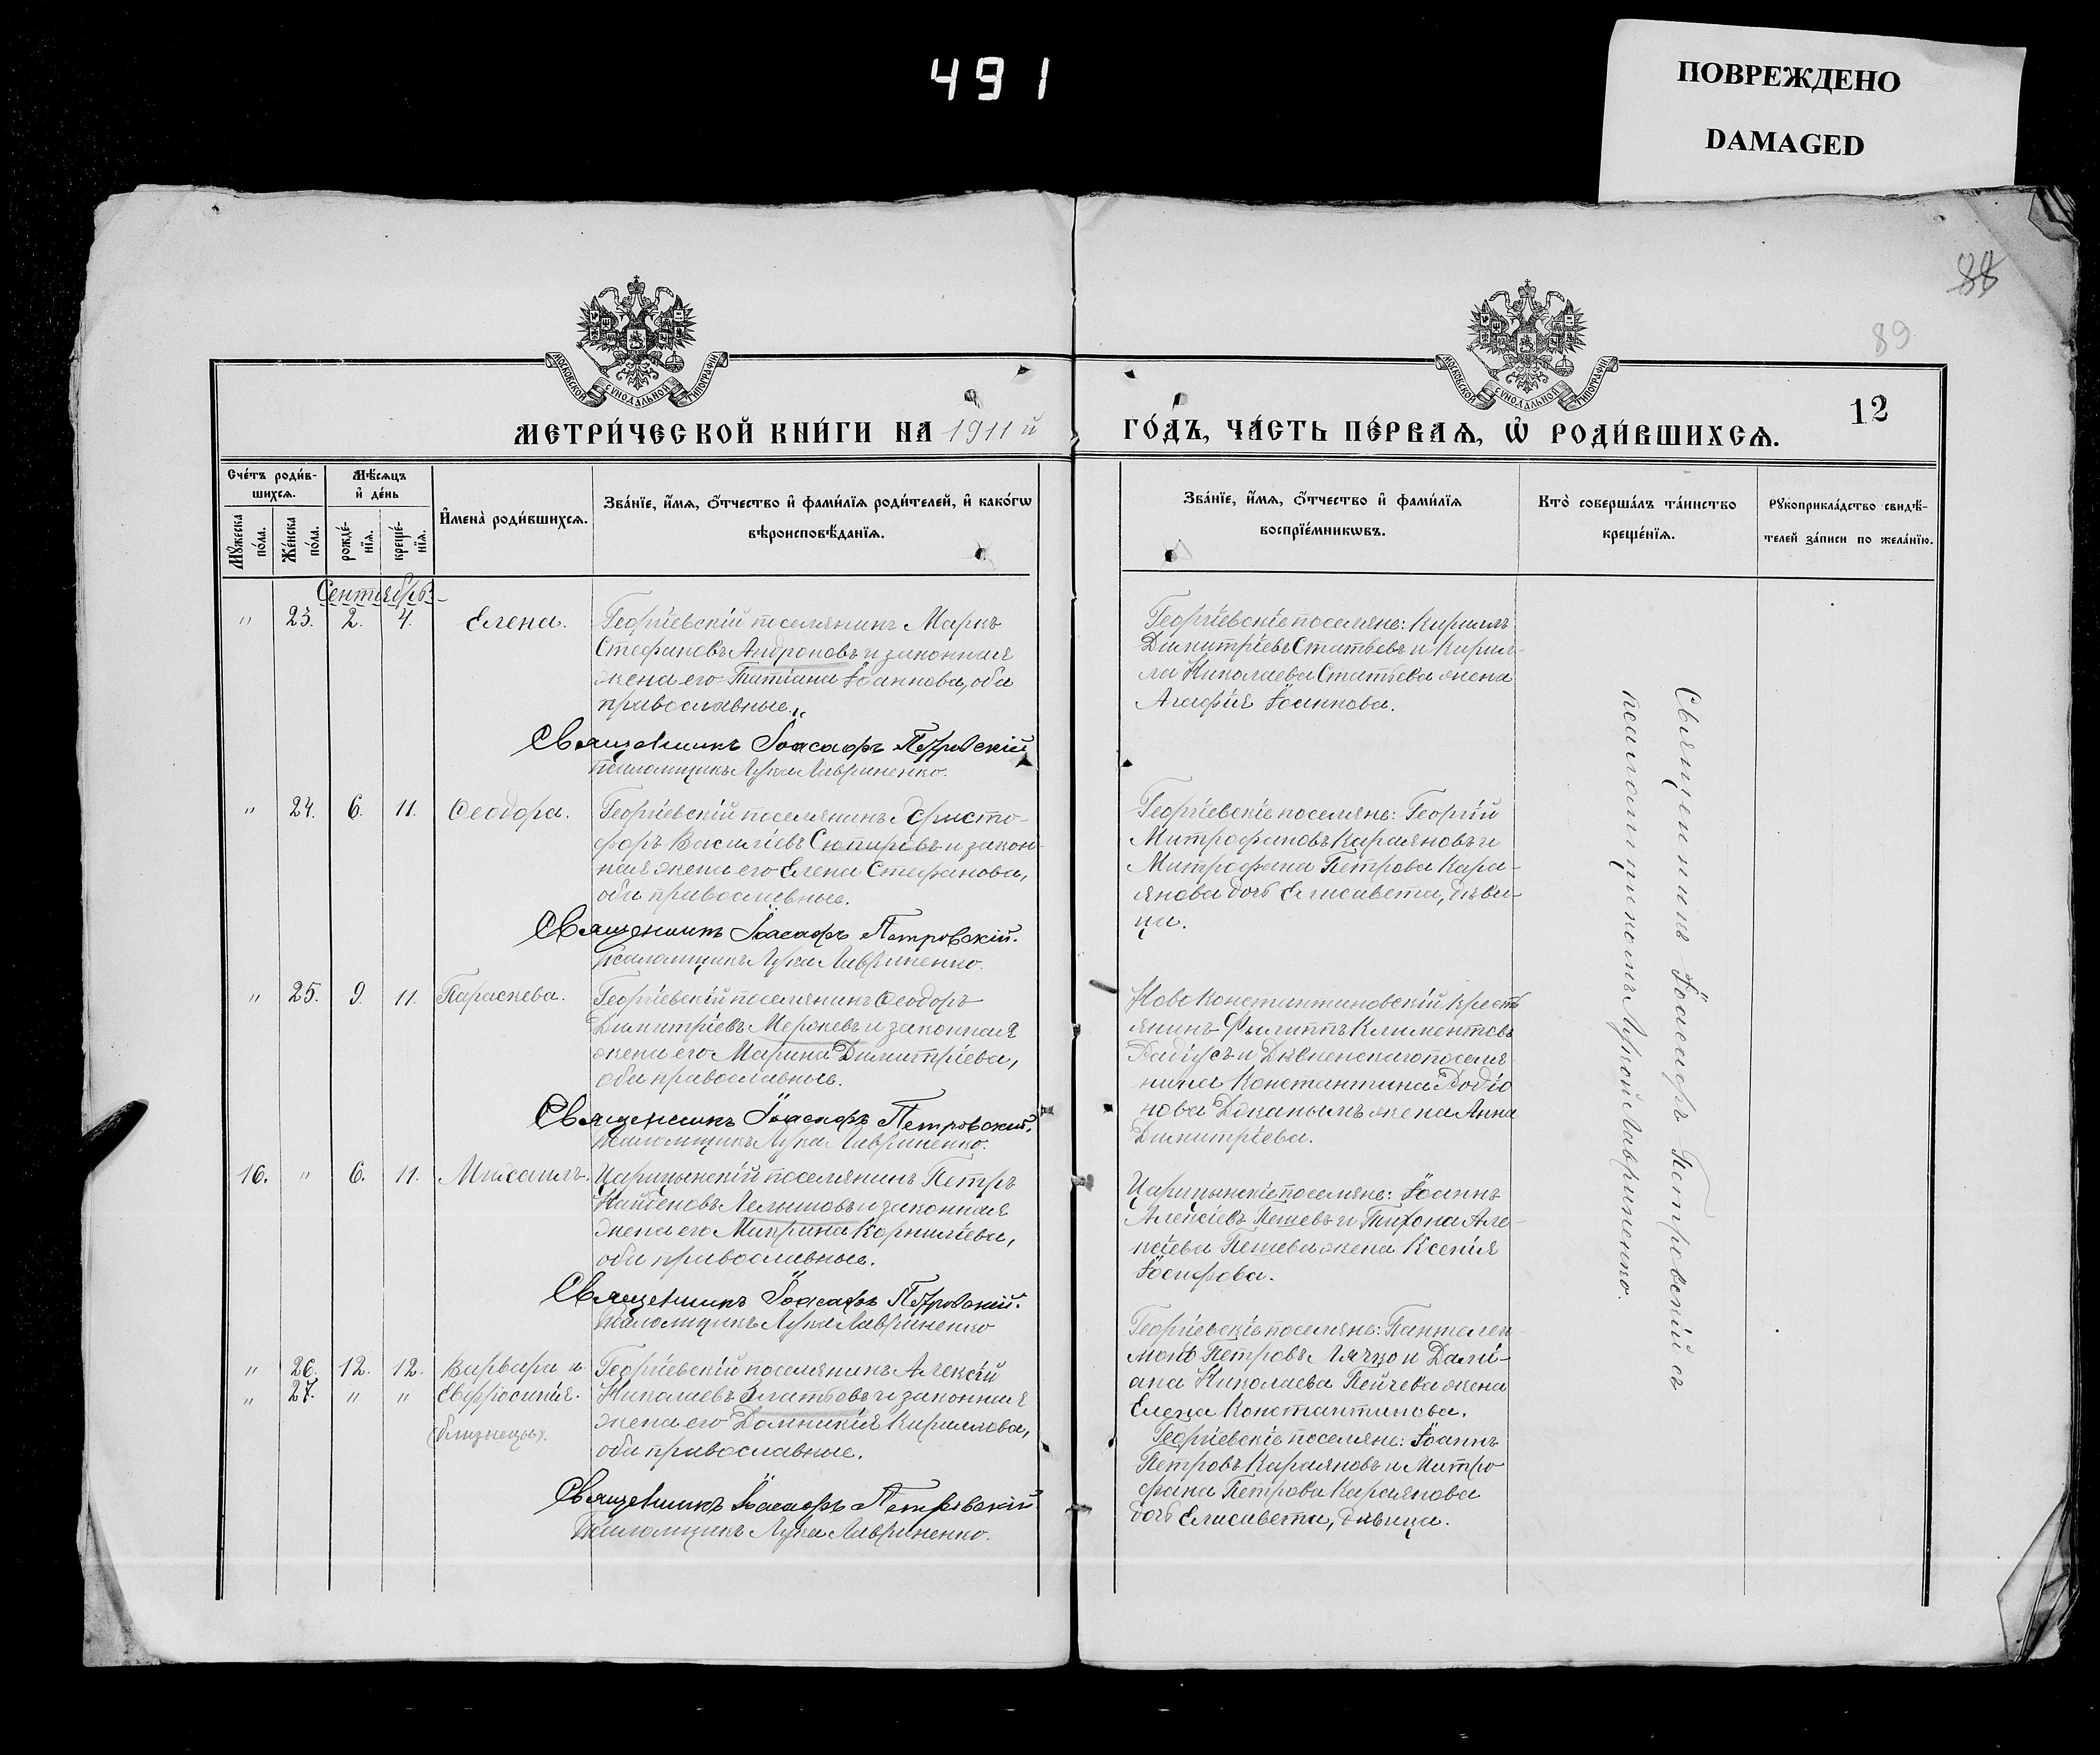 491
ПОВРЕЖДЕНО
DAMAGED
88
89
МОСКОВСКОЙ СУНОДАЛЬНОЙ ТИПОГРАФІИ
МОСКОВСКОЙ СУНОДАЛЬНОЙ ТИПОГРАФІИ
МЕТРИ́ЧЕСКОЙ КНИ́ГИ НА 1911 й
ГО́ДЪ, ЧА́СТЬ ПЕ́РВАѦ, Ѡ҆ РОДИ́ВШИХСѦ.
12
Сче́тъ роди́в-
шихсѧ.
Мꙋ́жеска
по́ла.
Же́нска
по́ла.
Мѣ́сѧцъ
и҆ де́нь
рожде́-
нїѧ.
креще́-
нїѧ.
И҆мена̀ роди́вшихсѧ.
Зва́нїе, и҆́мѧ, ѻ҆́тчество и҆ фами́лїѧ роди́телей, и҆ како́гѡ
вѣроисповѣ́данїѧ.
Зва́нїе, и҆́мѧ, ѻ҆́тчество и҆ фами́лїѧ
воспрїе́мникѡвъ.
Кто̀ соверша́лъ та́инство
креще́нїѧ.
Рꙋкоприкла́дство свидѣ́-
телей за́писи по жела́нїю.
Сентябрь
" 23. 2. 4. Елена.
Георгіевскій поселянинъ Маркъ
Стефановъ Андроновъ и законная
жена его Татіана Іоаннова, оба
православные.
Священникъ Іоасафъ Петровскій
Псаломщикъ Лука Лавриненко.
Георгіевскіе поселяне: Кириллъ
Димитріевъ Статьевъ и Кирил-
ла Николаева Статьева жена
Агафія Іоаннова.
" 24. 6. 11. Ѳеодора.
Георгіевскій поселянинъ Христо-
форъ Василіевъ Сктиревъ и закон-
ная жена его Елена Стефанова,
оба православные.
Священникъ Іоасафъ Петровскій.
Псаломщикъ Лука Лавриненко.
Георгіевскіе поселяне: Георгій
Митрофановъ Караяновъ и
Митрофана Петрова Кара-
янова дочь Елисавета, дѣви-
ца.
" 25. 9. 11. Параскева.
Георгіевскій поселянинъ Ѳеодоръ
Димитріевъ Мержевъ и законная
жена его Марина Димитріева,
оба православные.
Священникъ Іоасафъ Петровскій.
Псаломщикъ Лука Лавриненко.
Новоконстантиновскій кресть
янинъ Филиппъ Климентовъ
и поселя-
нина Константина Родіо
нова жена Анна
Димитріева.
16. " 6. 11. Мисаилъ.
Царицынскій поселянинъ Петръ
Найденовъ и законная
жена его Макрина Корниліева,
оба православные.
Священникъ Іоасафъ Петровскій.
Псаломщикъ Лука Лавриненко
Царицынскіе поселяне: Іоаннъ
Алексіевъ Пешевъ и Тихона Але-
ксіева Пешева жена Ксенія
Іосифова.
" 26. 12. 12. Варвара и
" 27. " " Евфросинія.
(близнецы).
Георгіевскій поселянинъ Алексій
Николаевъ Златьевъ и законная
жена его Домникія Кириллова,
оба православные.
Священникъ Іоасафъ Петровскій
Псаломщикъ Лука Лавриненко.
Георгіевскіе поселяне: Пантелеи-
монъ Петровъ и Дамі-
ана Николаева Пейчева жена
Елена Константинова.
Георгіевскіе поселяне: Іоаннъ
Петровъ Караяновъ и Митро
фана Петрова Караянова
дочь Елисавета, дѣвица.
Священникъ Іоасафъ Петровскій съ
псаломщикомъ Лукой Лавриненко.